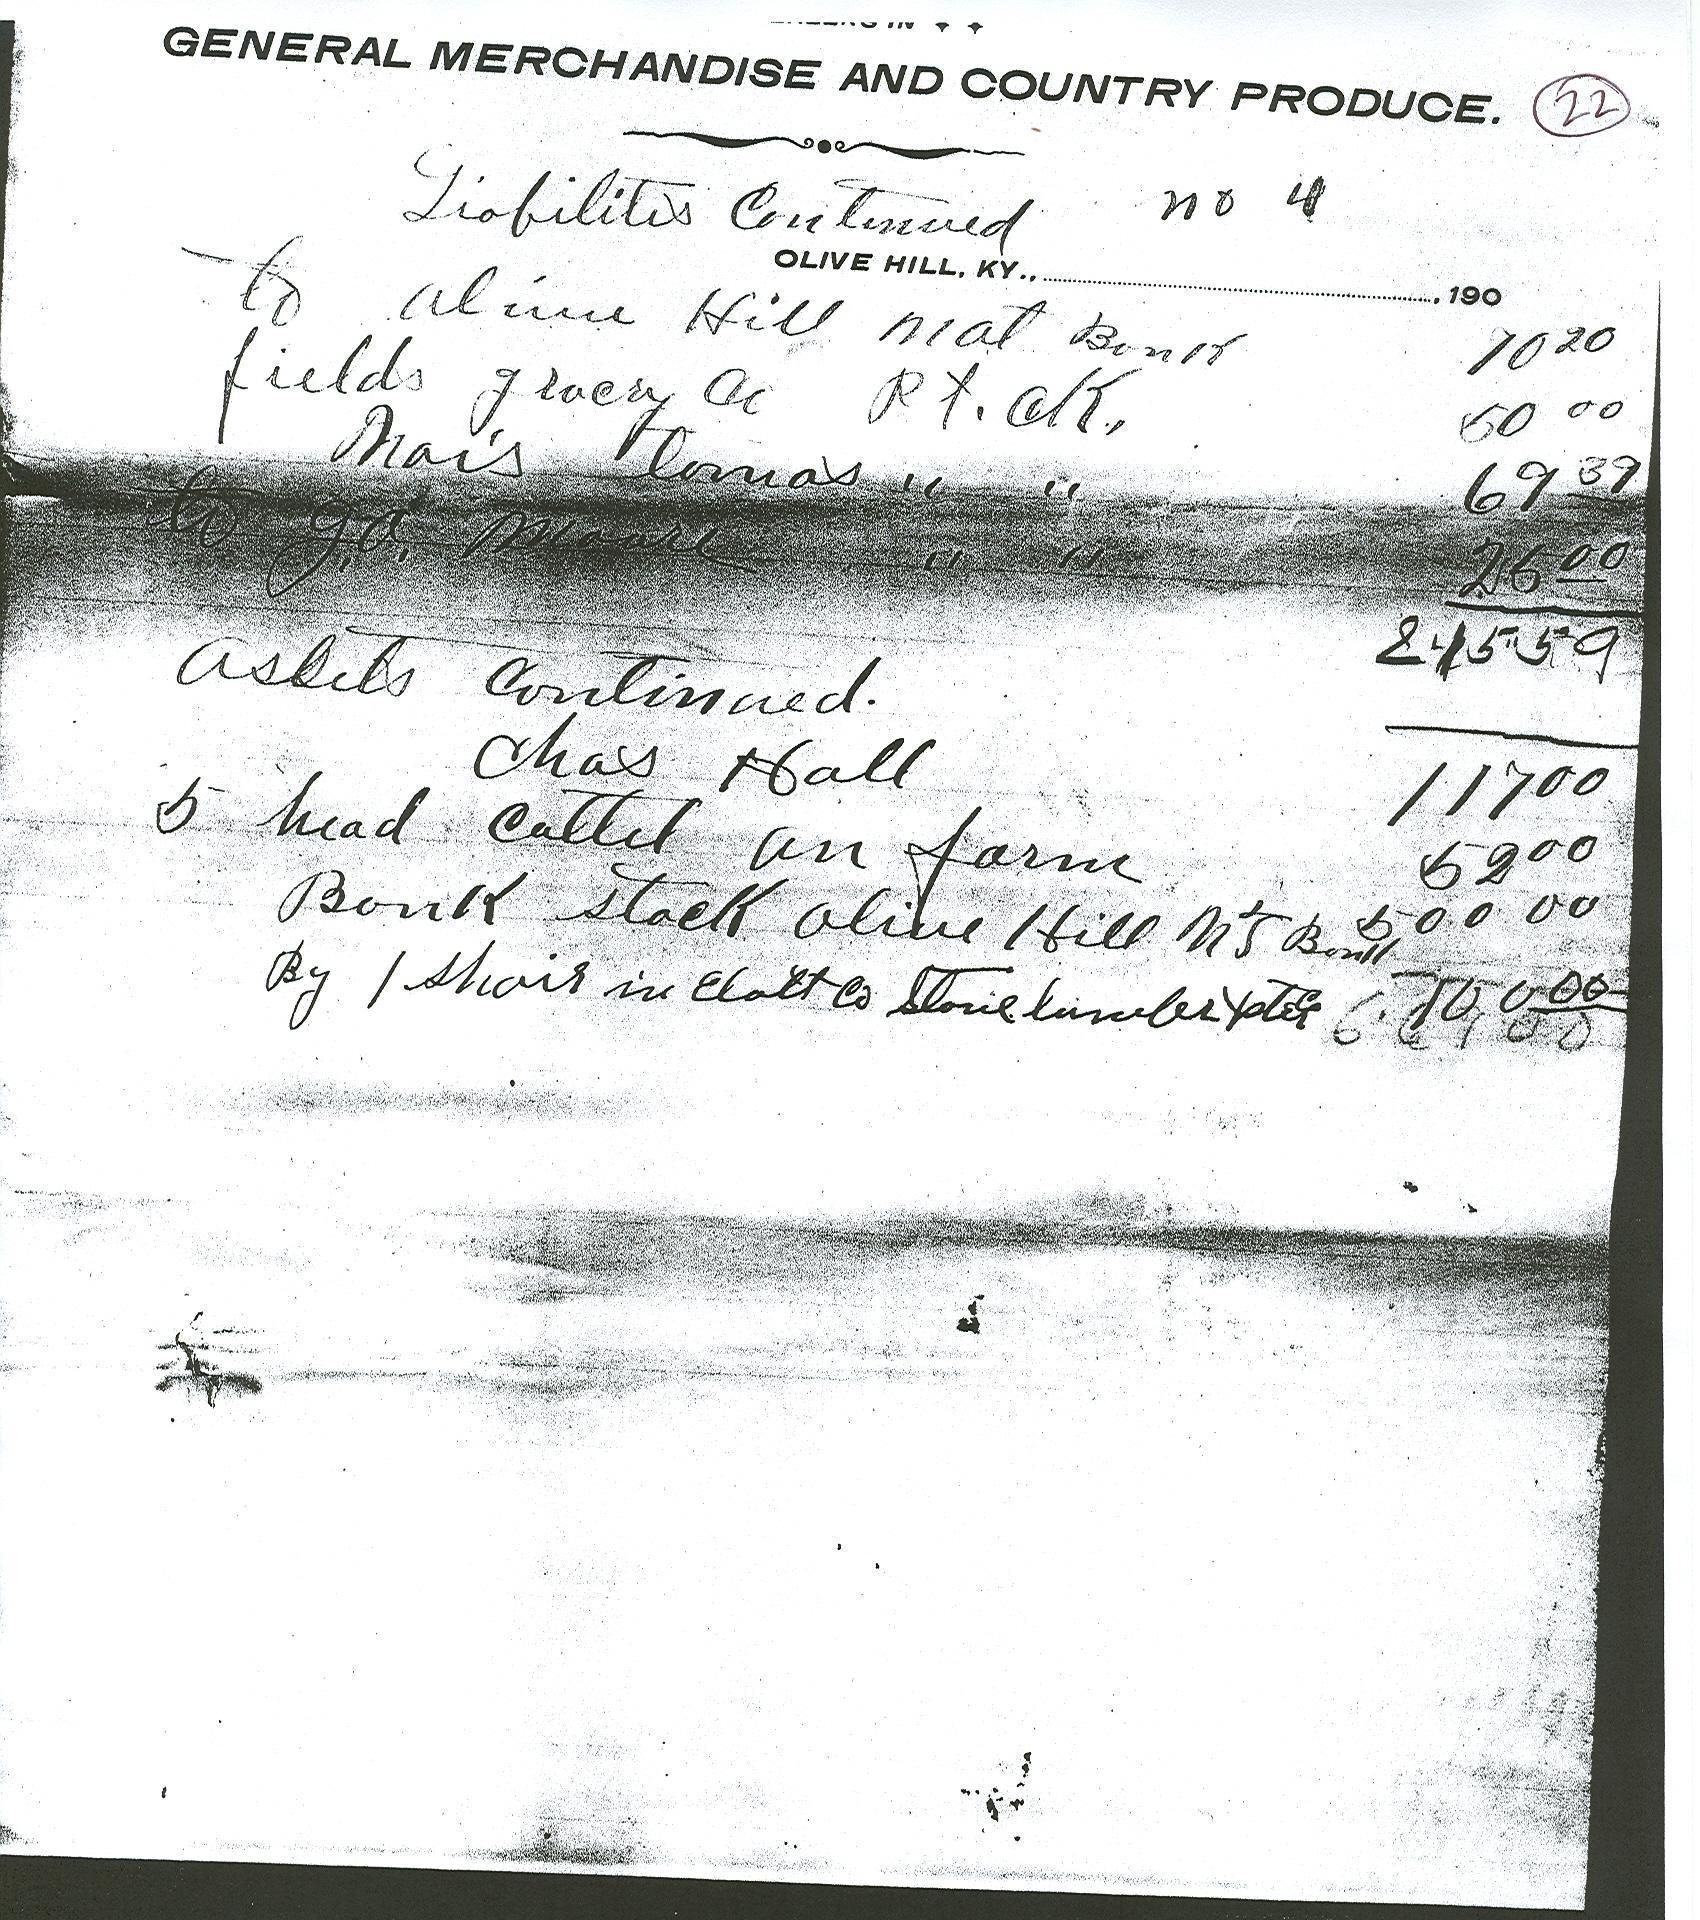 GENERAL MERCHANDISE AND COUNTRY PRODUCE. 22
Liabilitis Continued no 4
OLIVE HILL, KY., 190
to Olive Hill Nat Bank 70 20
fields grocery Co P t. ck. 50 00
Mais tomas " " 69 39
to J.O. Moore " " 26 00
245 59
Assets Continued.
Chas Hall 117 00
5 head Cattel on farm 52 00
Bank stock Olive Hill Bank 500 00
By 1 Shair in Co Stone lumber 00